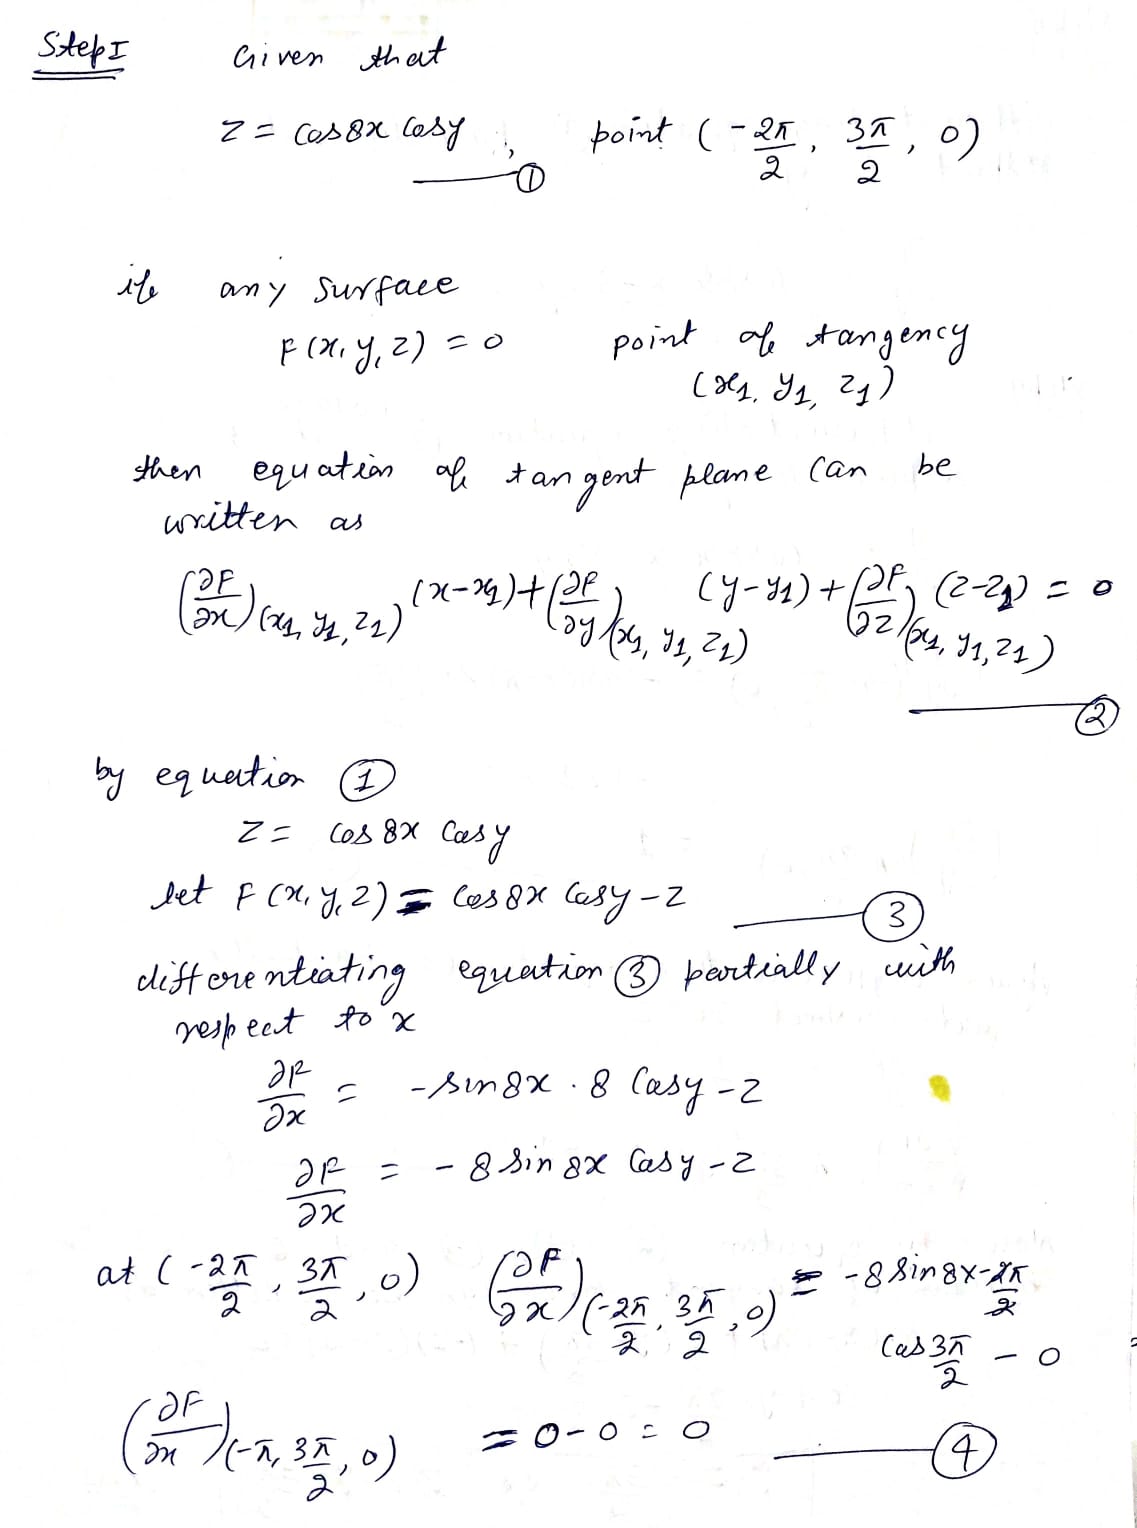 Step I Given that
z = cos8x cosy, ① point (-2π/2, 3π/2, 0)
if any surface
F(x, y, z) = 0 point of tangency
(x1, y1, z1)
then equation of tangent plane can be
written as
(∂F/∂x)(x1, y1, z1) (x-x1) + (∂F/∂y)(x1, y1, z1) (y-y1) + (∂F/∂z)(x1, y1, z1) (z-z1) = 0
②
by equation ①
z = cos 8x cosy
let F(x, y, z) = cos8x cosy - z ③
differentiating equation ③ partially with
respect to x
∂F/∂x = -sin8x . 8 cosy - z
∂F/∂x = -8 sin 8x cosy - z
at (-2π/2, 3π/2, 0) (∂F/∂x)(-2π/2, 3π/2, 0) = -8 sin8x-2π/2
cos 3π/2 - 0
(∂F/∂x)(-π, 3π/2, 0) = 0 - 0 = 0 ④